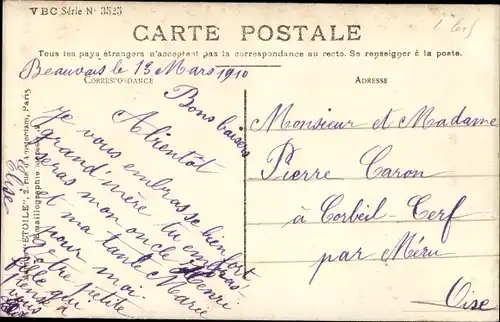 VBC Série N° 3525
CARTE POSTALE
Tous les pays étrangers n'acceptent pas la correspondance au recto. Se renseigner à la poste.
Beauvais le 13 Mars 1910
CORRESPONDANCE
ADRESSE
Bons baisers
A bientôt
Je vous embrasse bien fort
grand'mère tu embras-
seras mon oncle Henri
et ma tante Marie
pour moi.
Votre petite
fille qui
pense à
vous
Elise
Monsieur et Madame
Pierre Caron
à Corbeil-Cerf
par Méru
Oise
"ETOILE", 2 rue d'Amsterdam, Paris
Emaillographie